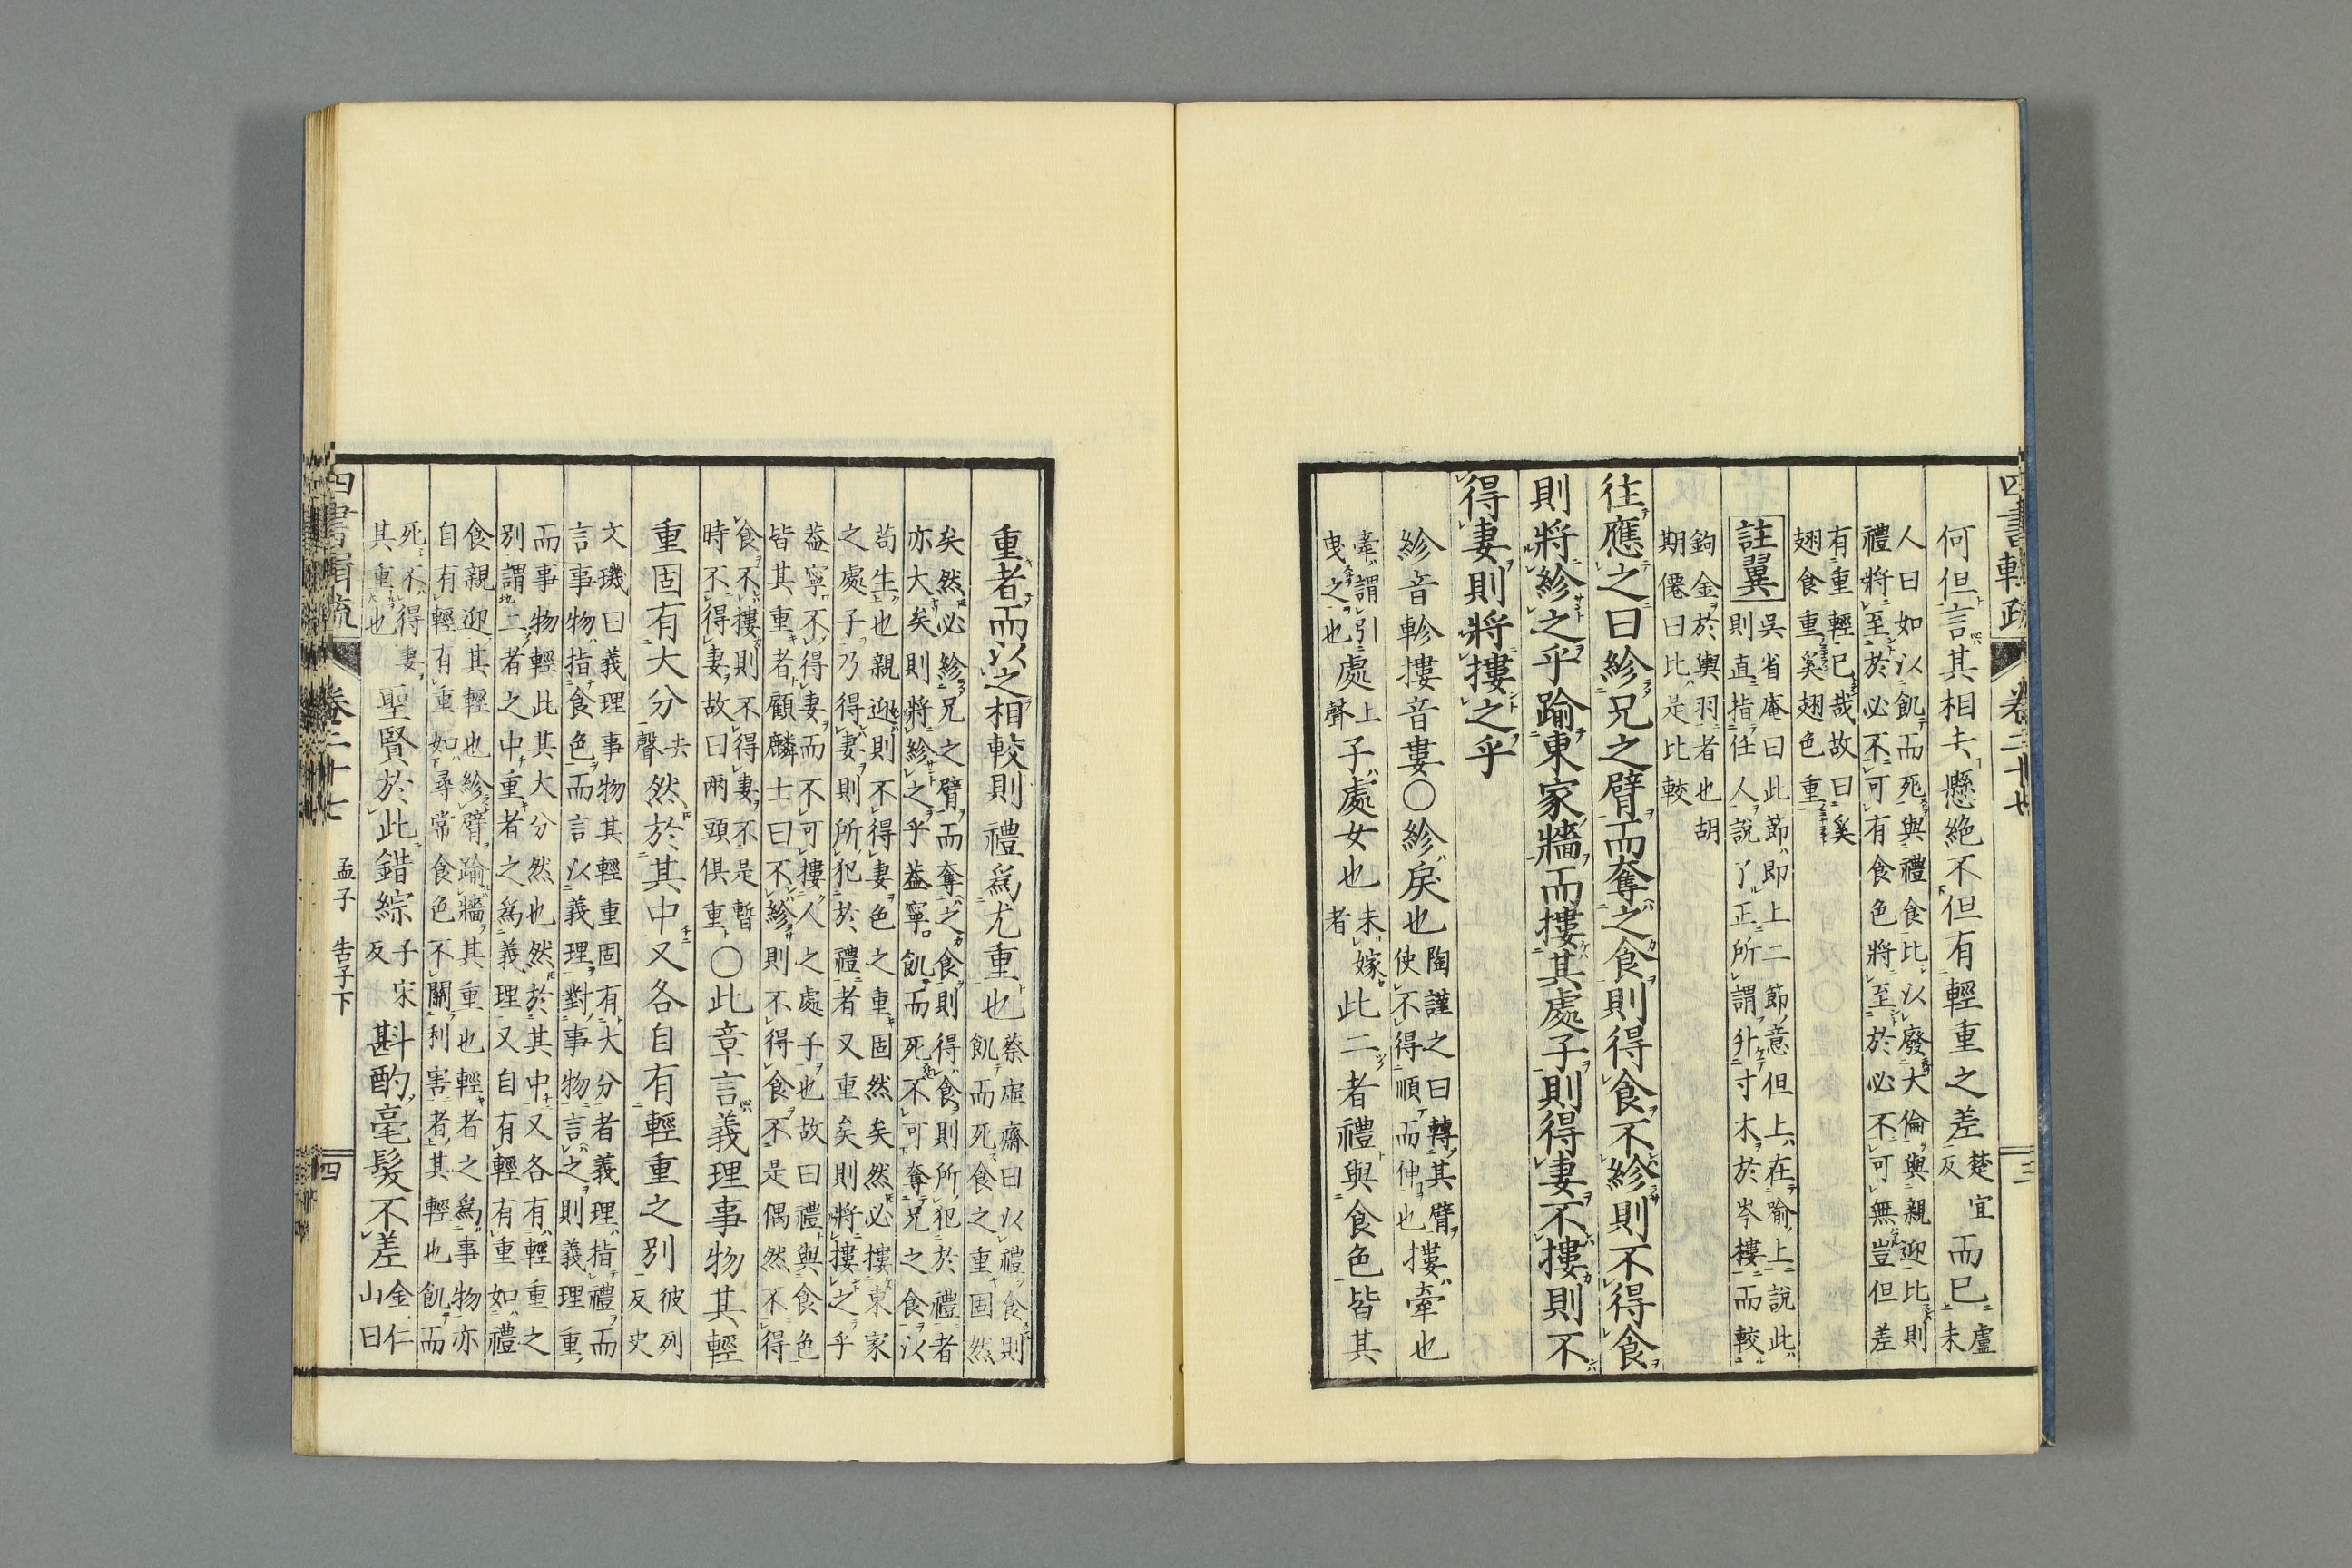 四書輯疏 卷二十七 三
何但言其相去懸絶不但有輕重之差楚宜反而已盧未
人曰如以飢而死與禮食比以廢大倫與親迎比則
禮將至於必不可有食色將至於必不可無豈但差
有重輕已哉故曰奚
翅食重奚翅色重
註翼 吳省庵曰此節即上二節意但上在喻上說此
則直指任人說了正所謂升寸木於岑樓而較
鉤金於輿羽者也胡
期僊曰比是比較
往應之曰紾兄之臂而奪之食則得食不紾則不得食
則將紾之乎踰東家牆而摟其處子則得妻不摟則不
得妻則將摟之乎
紾音軫摟音婁○紾戾也陶謹之曰轉其臂使不得順而伸也摟牽也
牽謂引曳之也處上聲子處女也未嫁者此二者禮與食色皆其
重者而以之相較則禮爲尤重也蔡虛齋曰以禮食則飢而死食之重固然
矣然必紾兄之臂而奪之食則得食則所犯於禮者
亦大矣則將紾之乎蓋寧飢而死不可奪兄之食以
苟生也親迎則不得妻色之重固然矣然必摟東家
之處子乃得妻則所犯於禮者又重矣則將摟之乎
蓋寧不得妻而不可摟人之處子也故曰禮與食色
皆其重者顧麟士曰不紾則不得食不是偶然不得
食不摟則不得妻不是暫
時不得妻故曰兩頭俱重
○此章言義理事物其輕
重固有大分去聲然於其中又各自有輕重之別彼列反史
文璣曰義理事物其輕重固有大分者義理指禮而
言事物指食色而言以義理對事物言之則義理重
而事物輕此其大分然也然於其中又各有輕重之
別謂二者之中重者之爲義理又自有輕有重如禮
食親迎其輕也紾臂踰牆其重也輕者之爲事物亦
自有輕有重如尋常食色不關利害者其輕也飢而
死不得妻
其重也
聖賢於此錯綜子宋反斟酌毫髮不差金仁山曰
四書輯疏 卷二十七 孟子 告子下 四